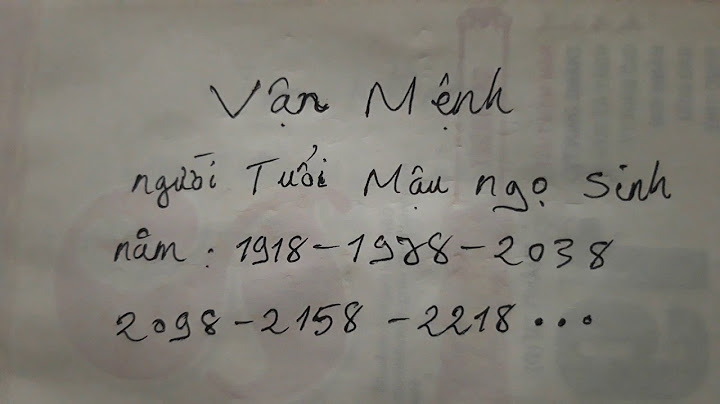 Vận Mệnh
người Tuổi Mậu ngọ Sinh
năm : 1918 - 1978 - 2038
2098 - 2158 - 2218 ...